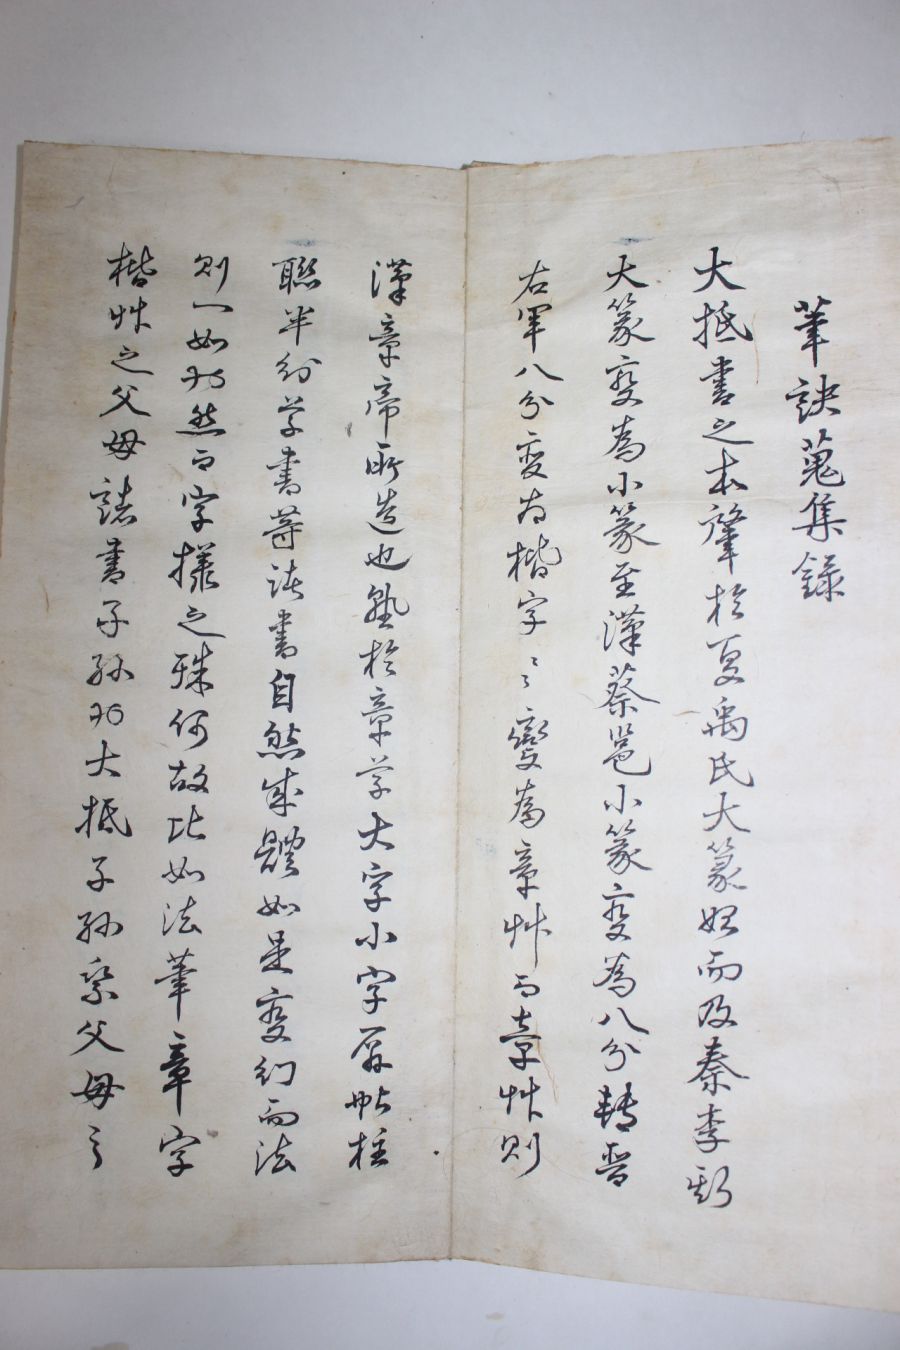 筆訣蒐集錄
大抵書之本肇於夏禹氏大篆始而及秦李斯
大篆變為小篆至漢蔡邕小篆變為八分轉晉
右軍八分變為楷字〻變為章艸而章艸則
漢章帝所造也熟於章草大字小字屏帖柱
聯半行草書等諸書自然成體如是變幻而法
則一如為然而字樣之殊何故比如法筆章字
楷艸之父母諸書子孫為大抵子孫系父母之